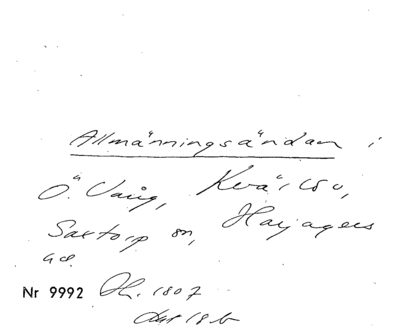 Allmänningsändan i
Ö. Vång, Kvärlöv,
Saxtorp sn, Harjagers
hd.
Nr 9992 Dh. 1807